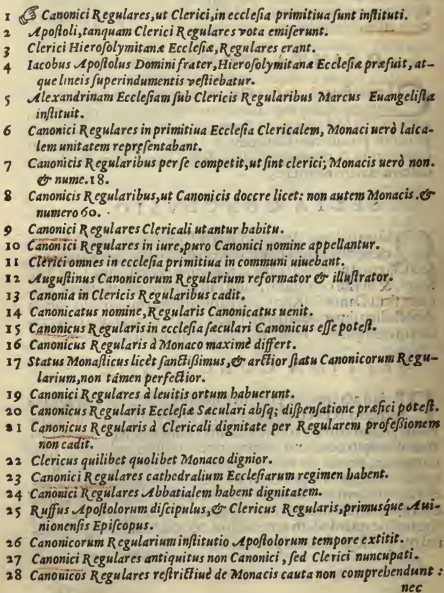 1 Canonici Regulares, ut Clerici, in ecclesia primitiua sunt instituti.
2 Apostoli, tanquam Clerici Regulares vota emiserunt.
3 Clerici Hierosolymitanæ Ecclesiæ, Regulares erant.
4 Iacobus Apostolus Domini frater, Hierosolymitanæ Ecclesiæ præfuit, at-
que lineis superindumentis vestiebatur.
5 Alexandrinam Ecclesiam sub Clericis Regularibus Marcus Euangelista
instituit.
6 Canonici Regulares in primitiua Ecclesia Clericalem, Monaci uerò laica-
lem unitatem repræsentabant.
7 Canonicis Regularibus per se competit, ut sint clerici; Monacis uerò non.
& nume. 18.
8 Canonicis Regularibus, ut Canonicis doccre licet: non autem Monacis. &
numero 60.
9 Canonici Regulares Clericali utantur habitu.
10 Canonici Regulares in iure, puro Canonici nomine appellantur.
11 Clerici omnes in ecclesia primitiua in communi uiuebant.
12 Augustinus Canonicorum Regularium reformator & illustrator.
13 Canonia in Clericis Regularibus cadit.
14 Canonicatus nomine, Regularis Canonicatus uenit.
15 Canonicus Regularis in ecclesia sæculari Canonicus esse potest.
16 Canonicus Regularis à Monaco maximè differt.
17 Status Monasticus licèt sanctissimus, & arctior statu Canonicorum Regu-
larium, non támen perfectior.
19 Canonici Regulares à leuitis ortum habuerunt.
20 Canonicus Regularis Ecclesiæ Sæculari absq; dispensatione præfici potest.
21 Canonicus Regularis à Clericali dignitate per Regularem professionem
non cadit.
22 Clericus quilibet quolibet Monaco dignior.
23 Canonici Regulares cathedralium Ecclesiarum regimen habent.
24 Canonici Regulares Abbatialem habent dignitatem.
25 Ruffus Apostolorum discipulus, & Clericus Regularis, primusque Aui-
nionensis Episcopus.
26 Canonicorum Regularium institutio Apostolorum tempore extitit.
27 Canonici Regulares antiquitus non Canonici, sed Clerici nuncupati.
28 Canonicos Regulares restrictiuè de Monacis cauta non comprehendunt:
nec